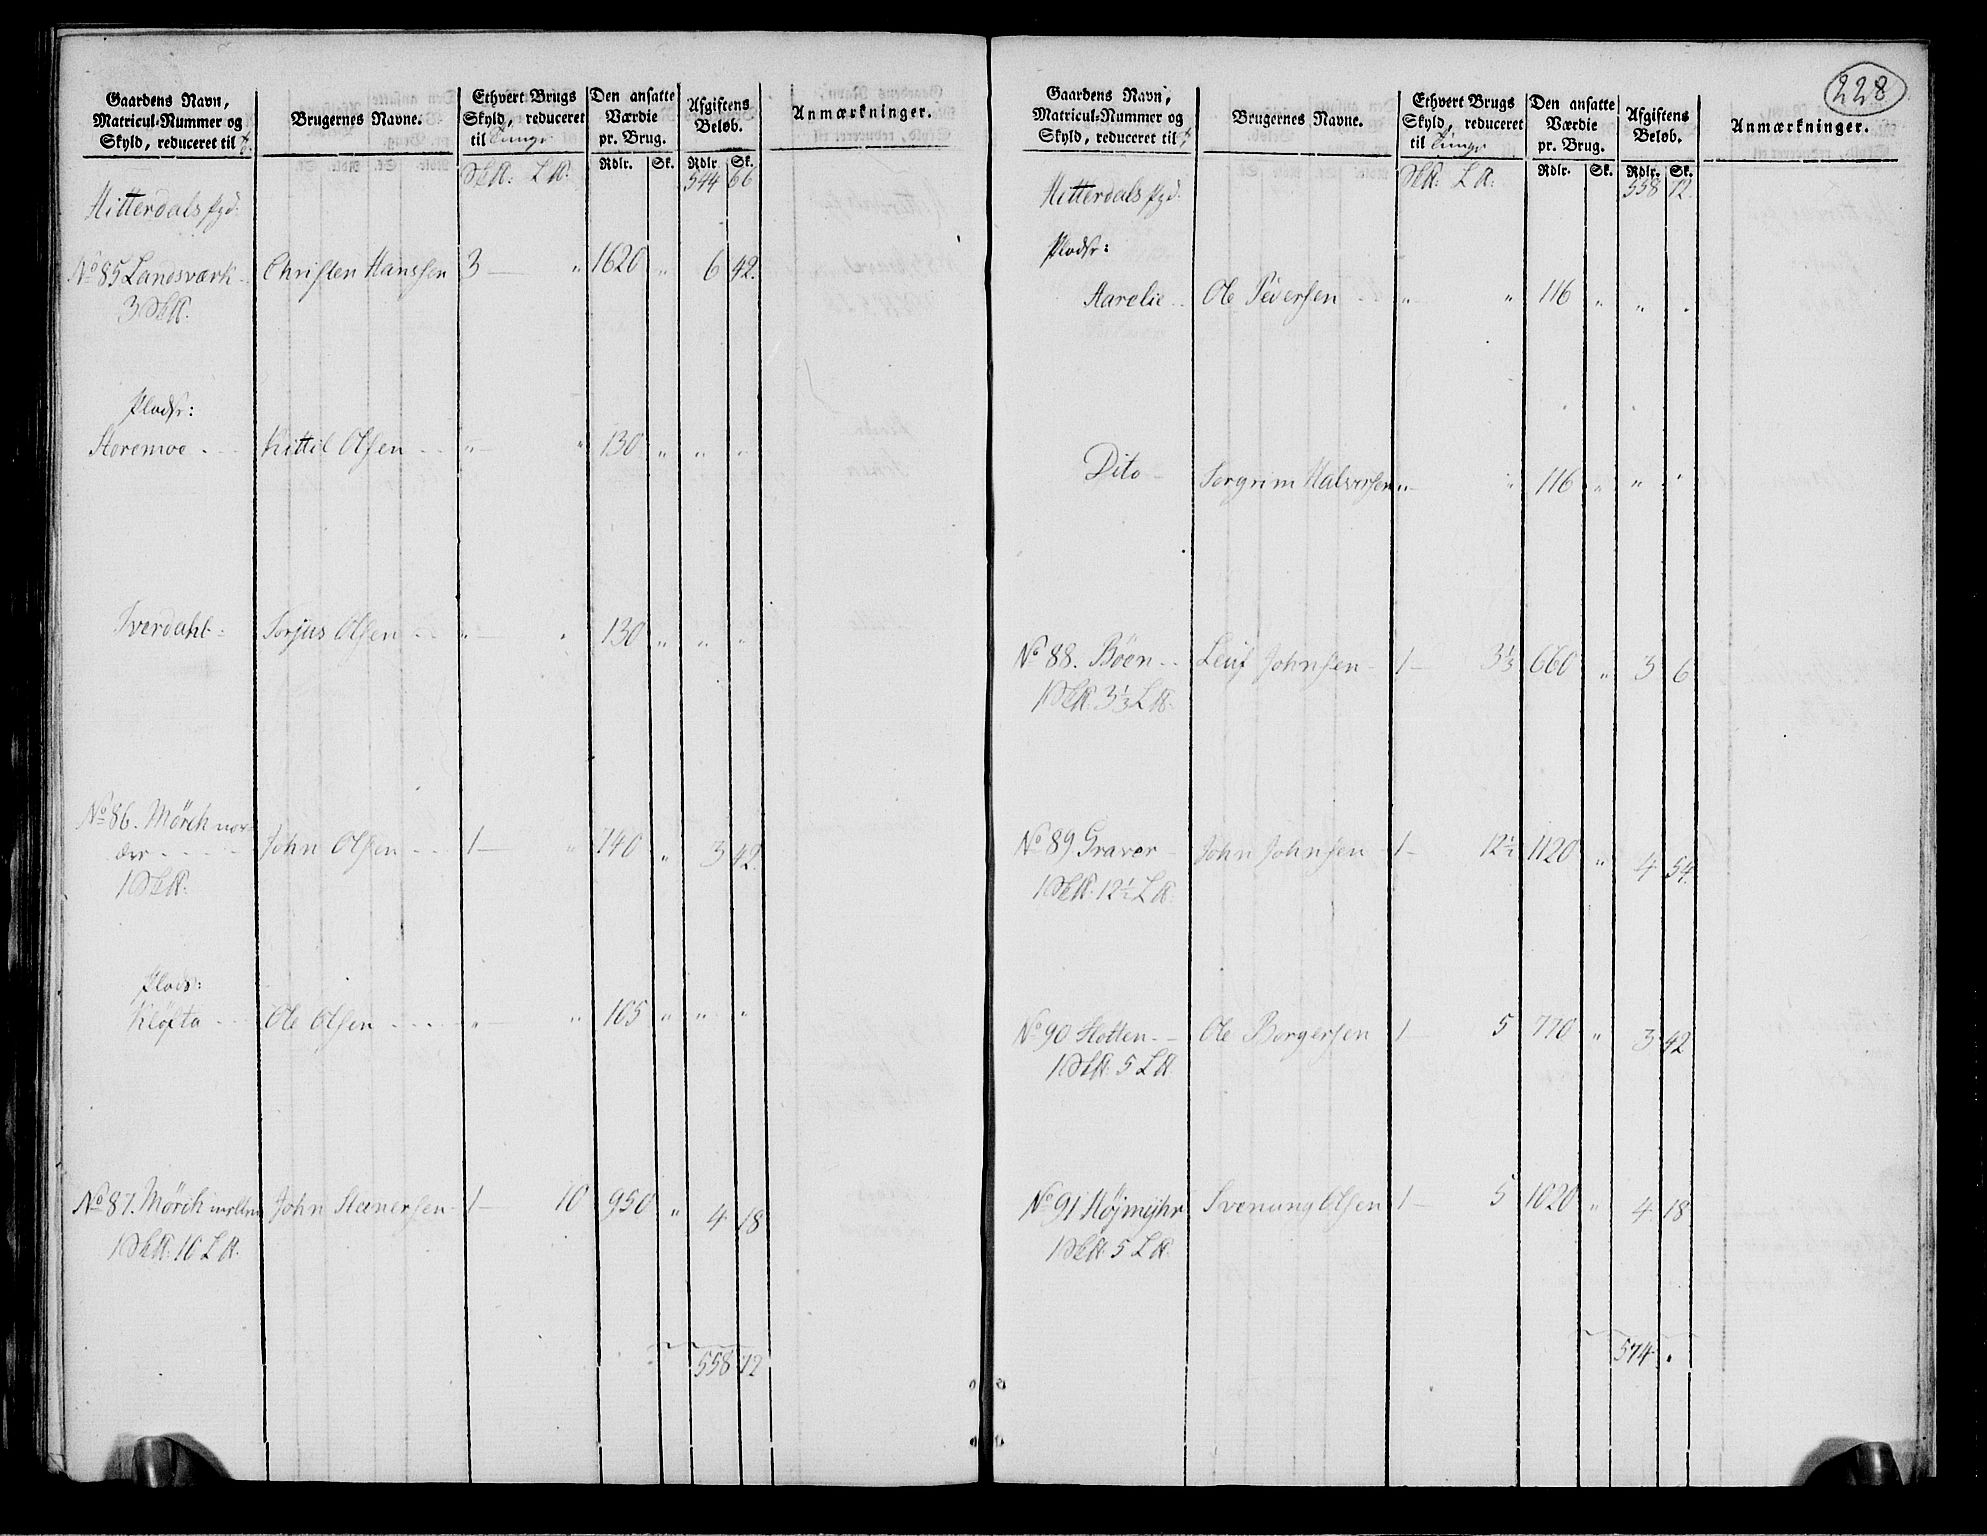 228
Gaardens Navn, Matricul-Nummer og Skyld, reduceret til
Brugernes Navne.
Ethvert Brugs Skyld, reduceret til Tunge
Den ansatte Værdie pr. Brug.
Afgiftens Beløb.
Anmærkninger.
Rdlr. Sk. Rdlr. Sk.
544 66
Hitterdals
No 85 Landsværk Christen Hanssen 3 — " 1620 " 6 42.
Pladsr:
Storemoe Kittil Olsen " — " 130 " " "
Iverdahl Torjus Olsen " — " 130 " " "
No 86. Mörck nor-
der John Olsen 1 — " 740 " 3 42.
Plads:
Klöfta Ole Olsen " — " 105 " " "
No 87. Mörck John Steenersen 1 — 10 950 " 4 18
558 72
Gaardens Navn, Matricul-Nummer og Skyld, reduceret til
Brugernes Navne.
Ethvert Brugs Skyld, reduceret til Tunge
Den ansatte Værdie pr. Brug.
Afgiftens Beløb.
Anmærkninger.
Rdlr. Sk. Rdlr. Sk.
558 72.
Hitterdals
Pladsr:
Aarelie Ole Pedersen " " 116 " " .
Dito Torgrim Halversen " — " 116 " " "
No 88. Böen Leuf Johnsen 1 — 3⅓ 660 " 3 6
No 89 Graver John Johnsen 1 — 12½ 1120 " 4 54.
No 90 Hotten Ole Borgersen 1 — 5 770 " 3 42
No 91 Höjmyhr Svenung Olsen 1 — 5 1020 " 4 18
574 .